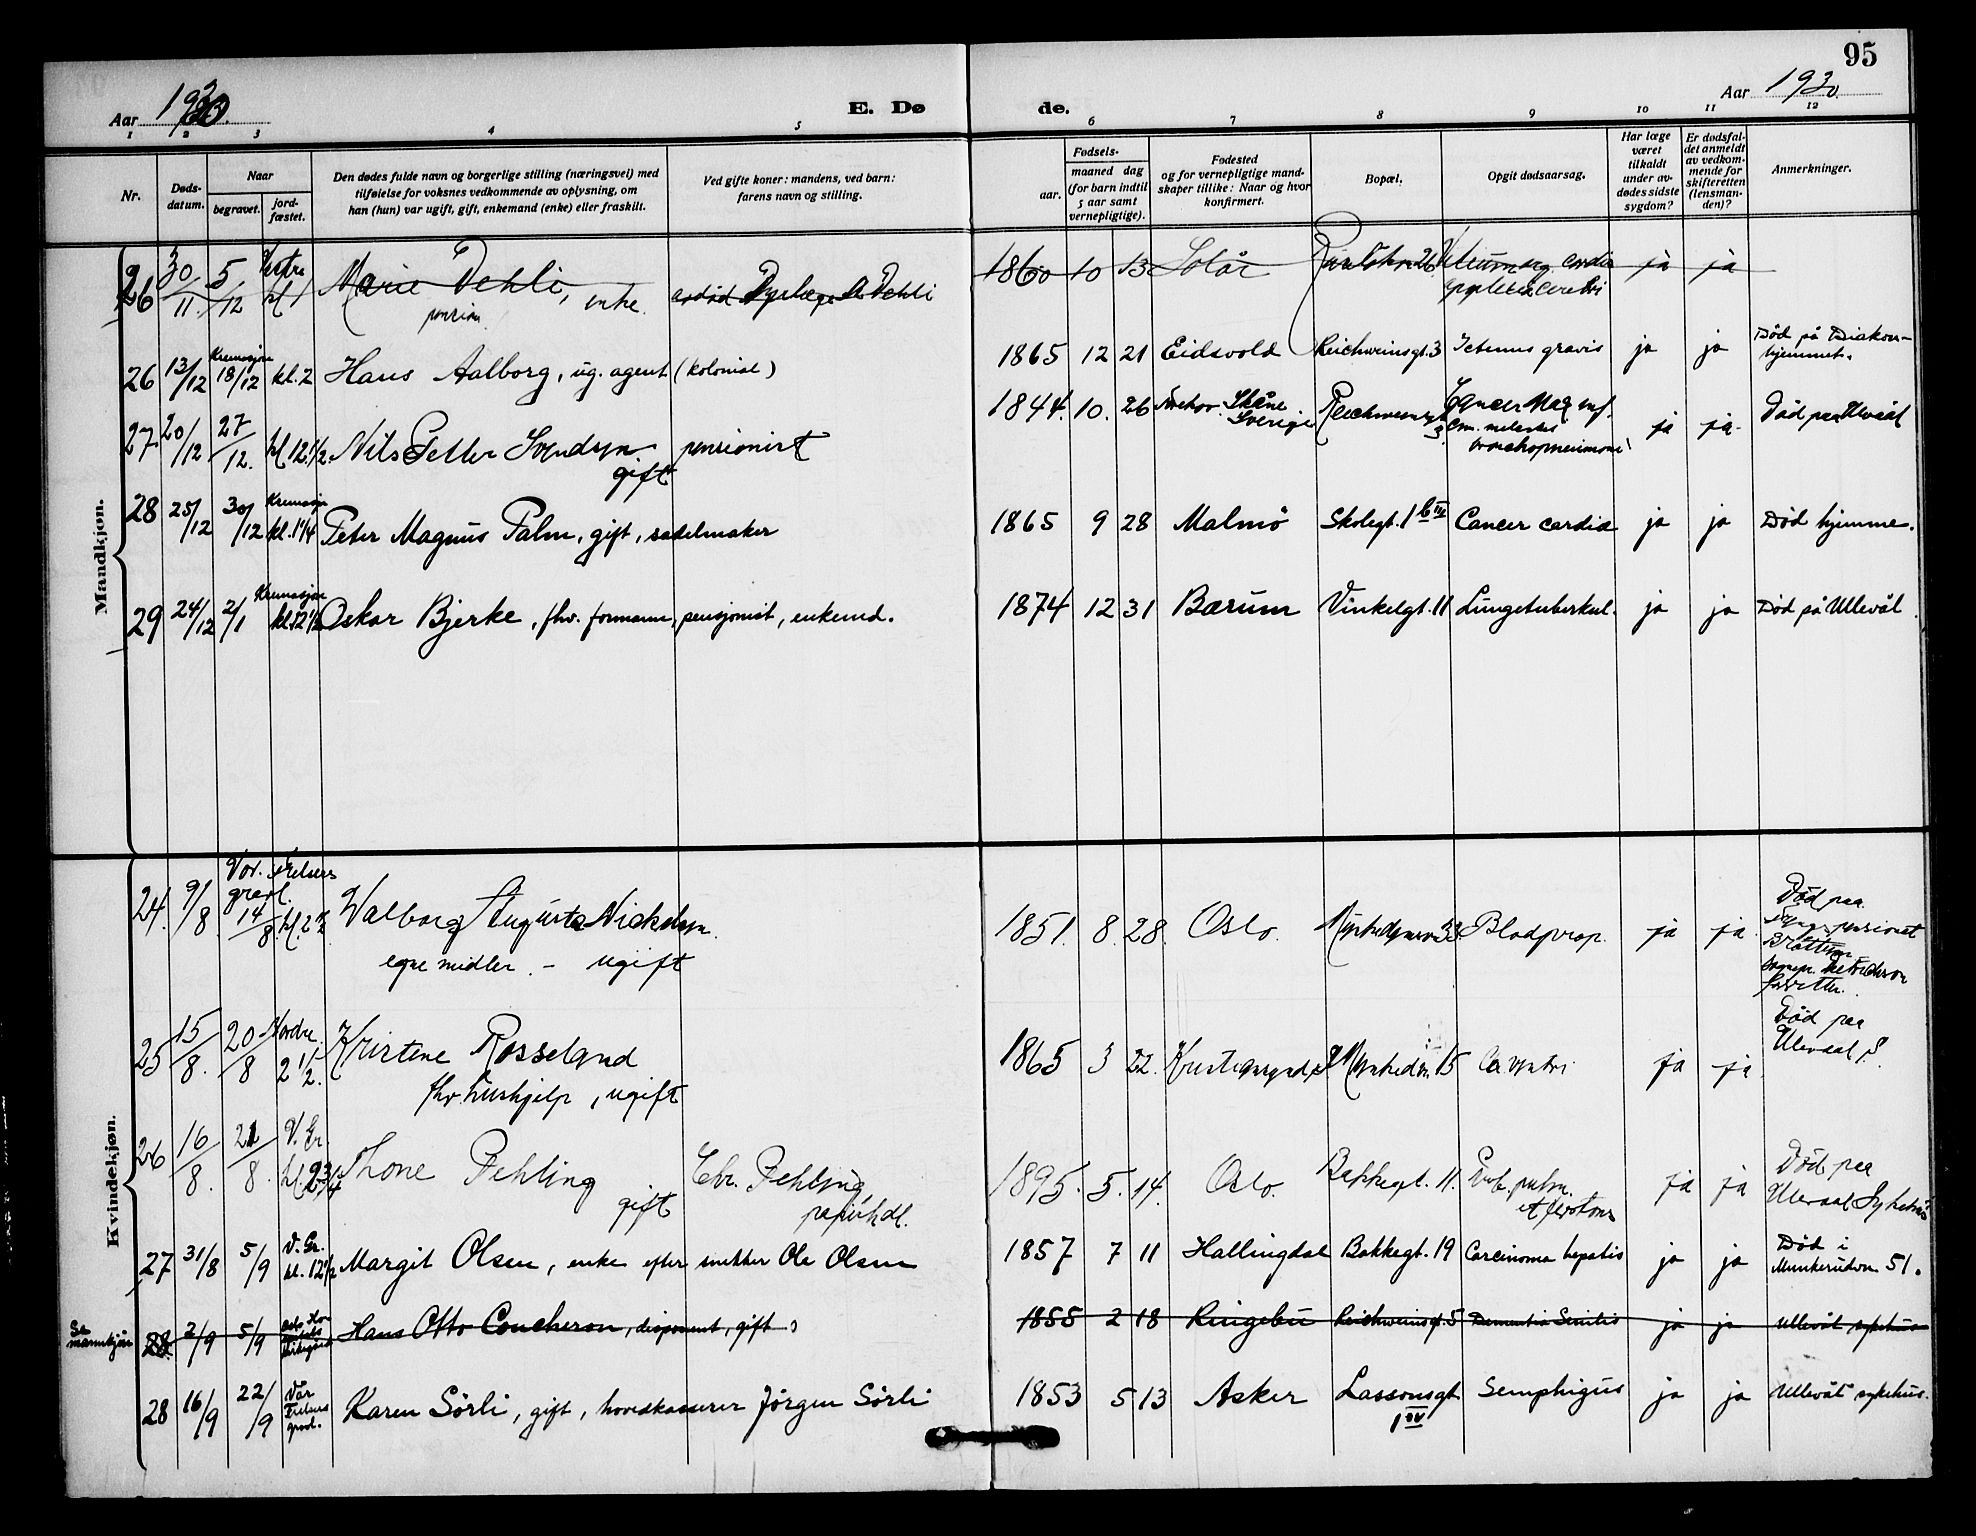 95
Aar 1930.
E. Døde.
Aar 1930.
1 2 3 4 5 6 7 8 9 10 11 12
Nr.
Døds-
datum.
Naar
begravet.
jord-
fæstet.
Den dødes fulde navn og borgerlige stilling (næringsvei) med
tilføielse for voksnes vedkommende av oplysning, om
han (hun) var ugift, gift, enkemand (enke) eller fraskilt.
Ved gifte koner: mandens, ved barn:
farens navn og stilling.
Fødsels-
aar.
maaned dag
(for barn indtil
5 aar samt
vernepligtige).
Fødested
og for vernepligtige mand-
skaper tillike: Naar og hvor
konfirmert.
Bopæl.
Opgit dødsaarsag.
Har læge
været
tilkaldt
under av-
dødes sidste
sygdom?
Er dødsfal-
det anmeldt
av vedkom-
mende for
skifteretten
(lensman-
den)?
Anmerkninger.
Mandkjøn.
26 30/11 5/12 Vestre kl 1 Marie Dehli, enke. Dyrlæge A Dehli 1860 10 13 Solør ja ja
pension.
26 13/12 Kremasjon 18/12 kl. 2 Hans Aalborg, ug. agent (kolonial) 1865 12 21 Eidsvold Reichweinsgt. 3 Icterus gravis ja ja Død på Diakon-
hjemmet.
27 20/12 27/12. kl 12.1/2. Nils Petter Svendsen pensionist 1844. 10. 26 Skåne Sverige 3 Cancer bronchopneumoni ja ja. Død paa Ulevål
gift
28 25/12 30/12 Kremasjon kl. 1 1/4 Peter Magnus Palm, gift, sadelmaker 1865 9 28 Malmö Skolegt. 16 III Cancer cardia ja ja Død hjemme.
29 24/12 2/1 Kremasjon kl. 12 1/2 Oskar Bjerke, fhv. formann, pensjonist, enkemd. 1874 12 31 Bærum Vinkelgt. 11 Lungetuberkul. ja ja Død på Ullevål
Kvindekjøn.
24. 9/8 Vor Frelsers gravl. 14/8. Walborg Augusta Nickelsen. 1851. 8. 28. Oslo. Blodprop. ja ja. Død paa
egne midler. - ugift
25 15/8. 20/8 Nordre 2 1/2. Kristene Rosseland 1865 3 22. ja ja Død paa
Ulevaal S.
fhv. hushjelp, ugift
26 16/8. 21/8. V. Gr. Thone Fehling Chr. Fehling, 1895. 5. 14. Oslo. Bakkegt. 11. Tub. pulm. ja ja Død paa
Ulevaal Sykehus
gift papirhdl.
27 31/8 5/9 V. Gr. kl. 12 1/2 Margit Olsen, enke efter snekker Ole Olsen 1857 7 11 Hallingdal Bakkegt. 19 Carcinoma hepatis ja ja Død i
Munkerudvn. 51.
Se
mannkjøn 28. 2/9 5/9 Hans Otto Concheron, disponent, gift 1855 2 18 Ringebu Reichweinsgt. 5 Dementia Senilis ja ja Ullevål sykehus
28 16/9 22/9 Vår Frelsers grvl. Karen Sörli, gift, hovedkasserer Jörgen Sörli 1853 5 13 Asker Lassonsgt 1 IV Semphigus ja ja Ullevål sykehus.